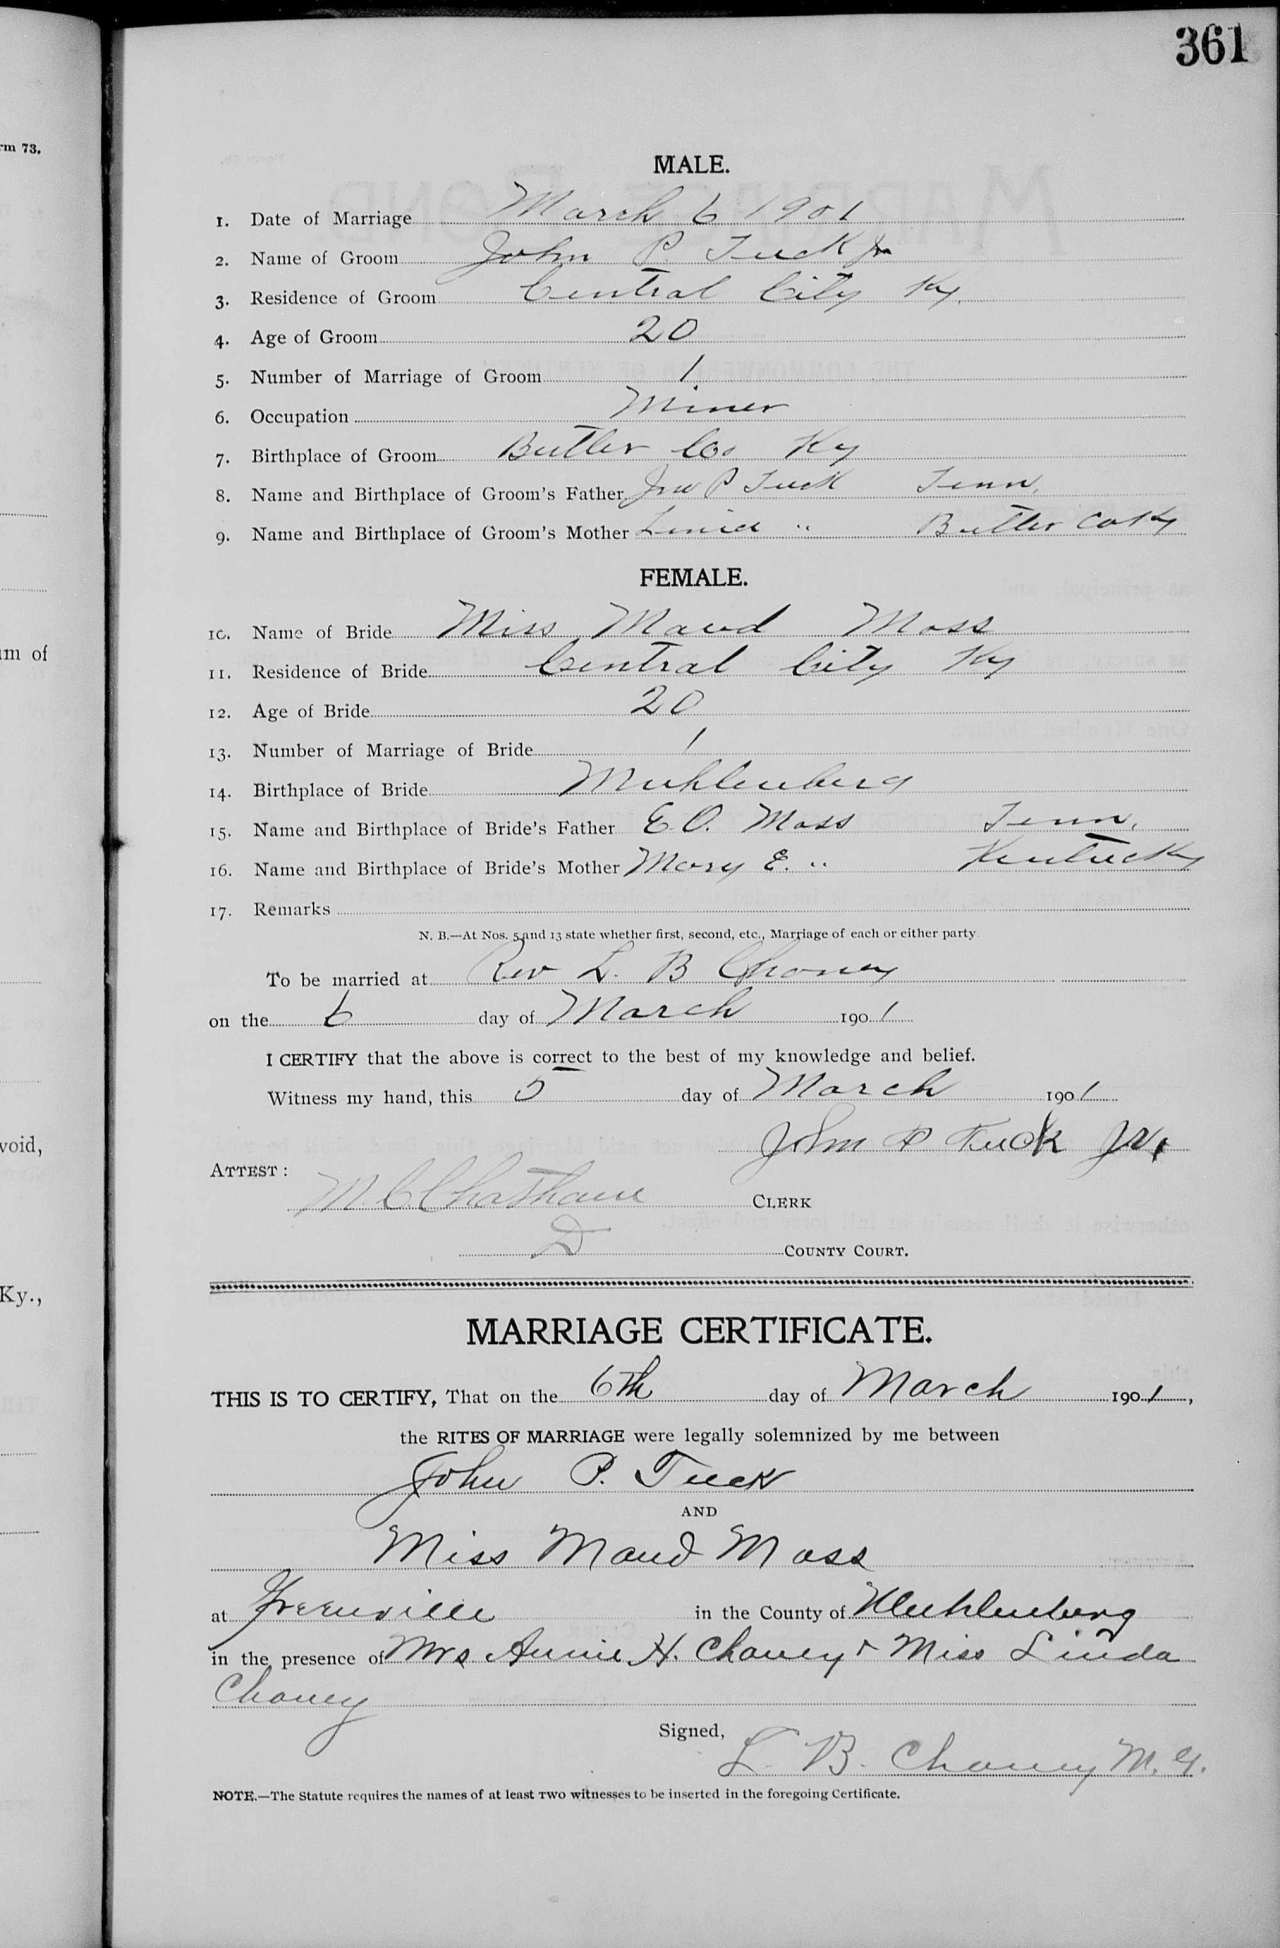 361
rm 73.
MALE.
1. Date of Marriage March 6 1901
2. Name of Groom John P. Tuck Jr
3. Residence of Groom Central City Ky.
4. Age of Groom 20
5. Number of Marriage of Groom 1
6. Occupation Miner
7. Birthplace of Groom Butler Co Ky
8. Name and Birthplace of Groom's Father Jno P Tuck Tenn.
9. Name and Birthplace of Groom's Mother " Butler Co Ky
FEMALE.
10. Name of Bride Miss Maud Moss
um of
11. Residence of Bride Central City Ky
12. Age of Bride 20
13. Number of Marriage of Bride 1
14. Birthplace of Bride Muhlenberg
15. Name and Birthplace of Bride's Father E. O. Moss Tenn.
16. Name and Birthplace of Bride's Mother Mary E. " Kentucky
17. Remarks
N. B.—At Nos. 5 and 13 state whether first, second, etc., Marriage of each or either party.
To be married at Rev L. B Chaney
on the 6 day of March 1901
I CERTIFY that the above is correct to the best of my knowledge and belief.
Witness my hand, this 5 day of March 1901
void,
John P Tuck Jr.
ATTEST:
M C Chatham CLERK
D COUNTY COURT.
Ky.,
MARRIAGE CERTIFICATE.
THIS IS TO CERTIFY, That on the 6th day of March 1901,
the RITES OF MARRIAGE were legally solemnized by me between
John P. Tuck
AND
Miss Maud Moss
at Greenville in the County of Muhlenberg
in the presence of Mrs Annie H. Chaney + Miss Linda
Chaney
Signed,
L. B. Chaney M. G.
NOTE.—The Statute requires the names of at least TWO witnesses to be inserted in the foregoing Certificate.